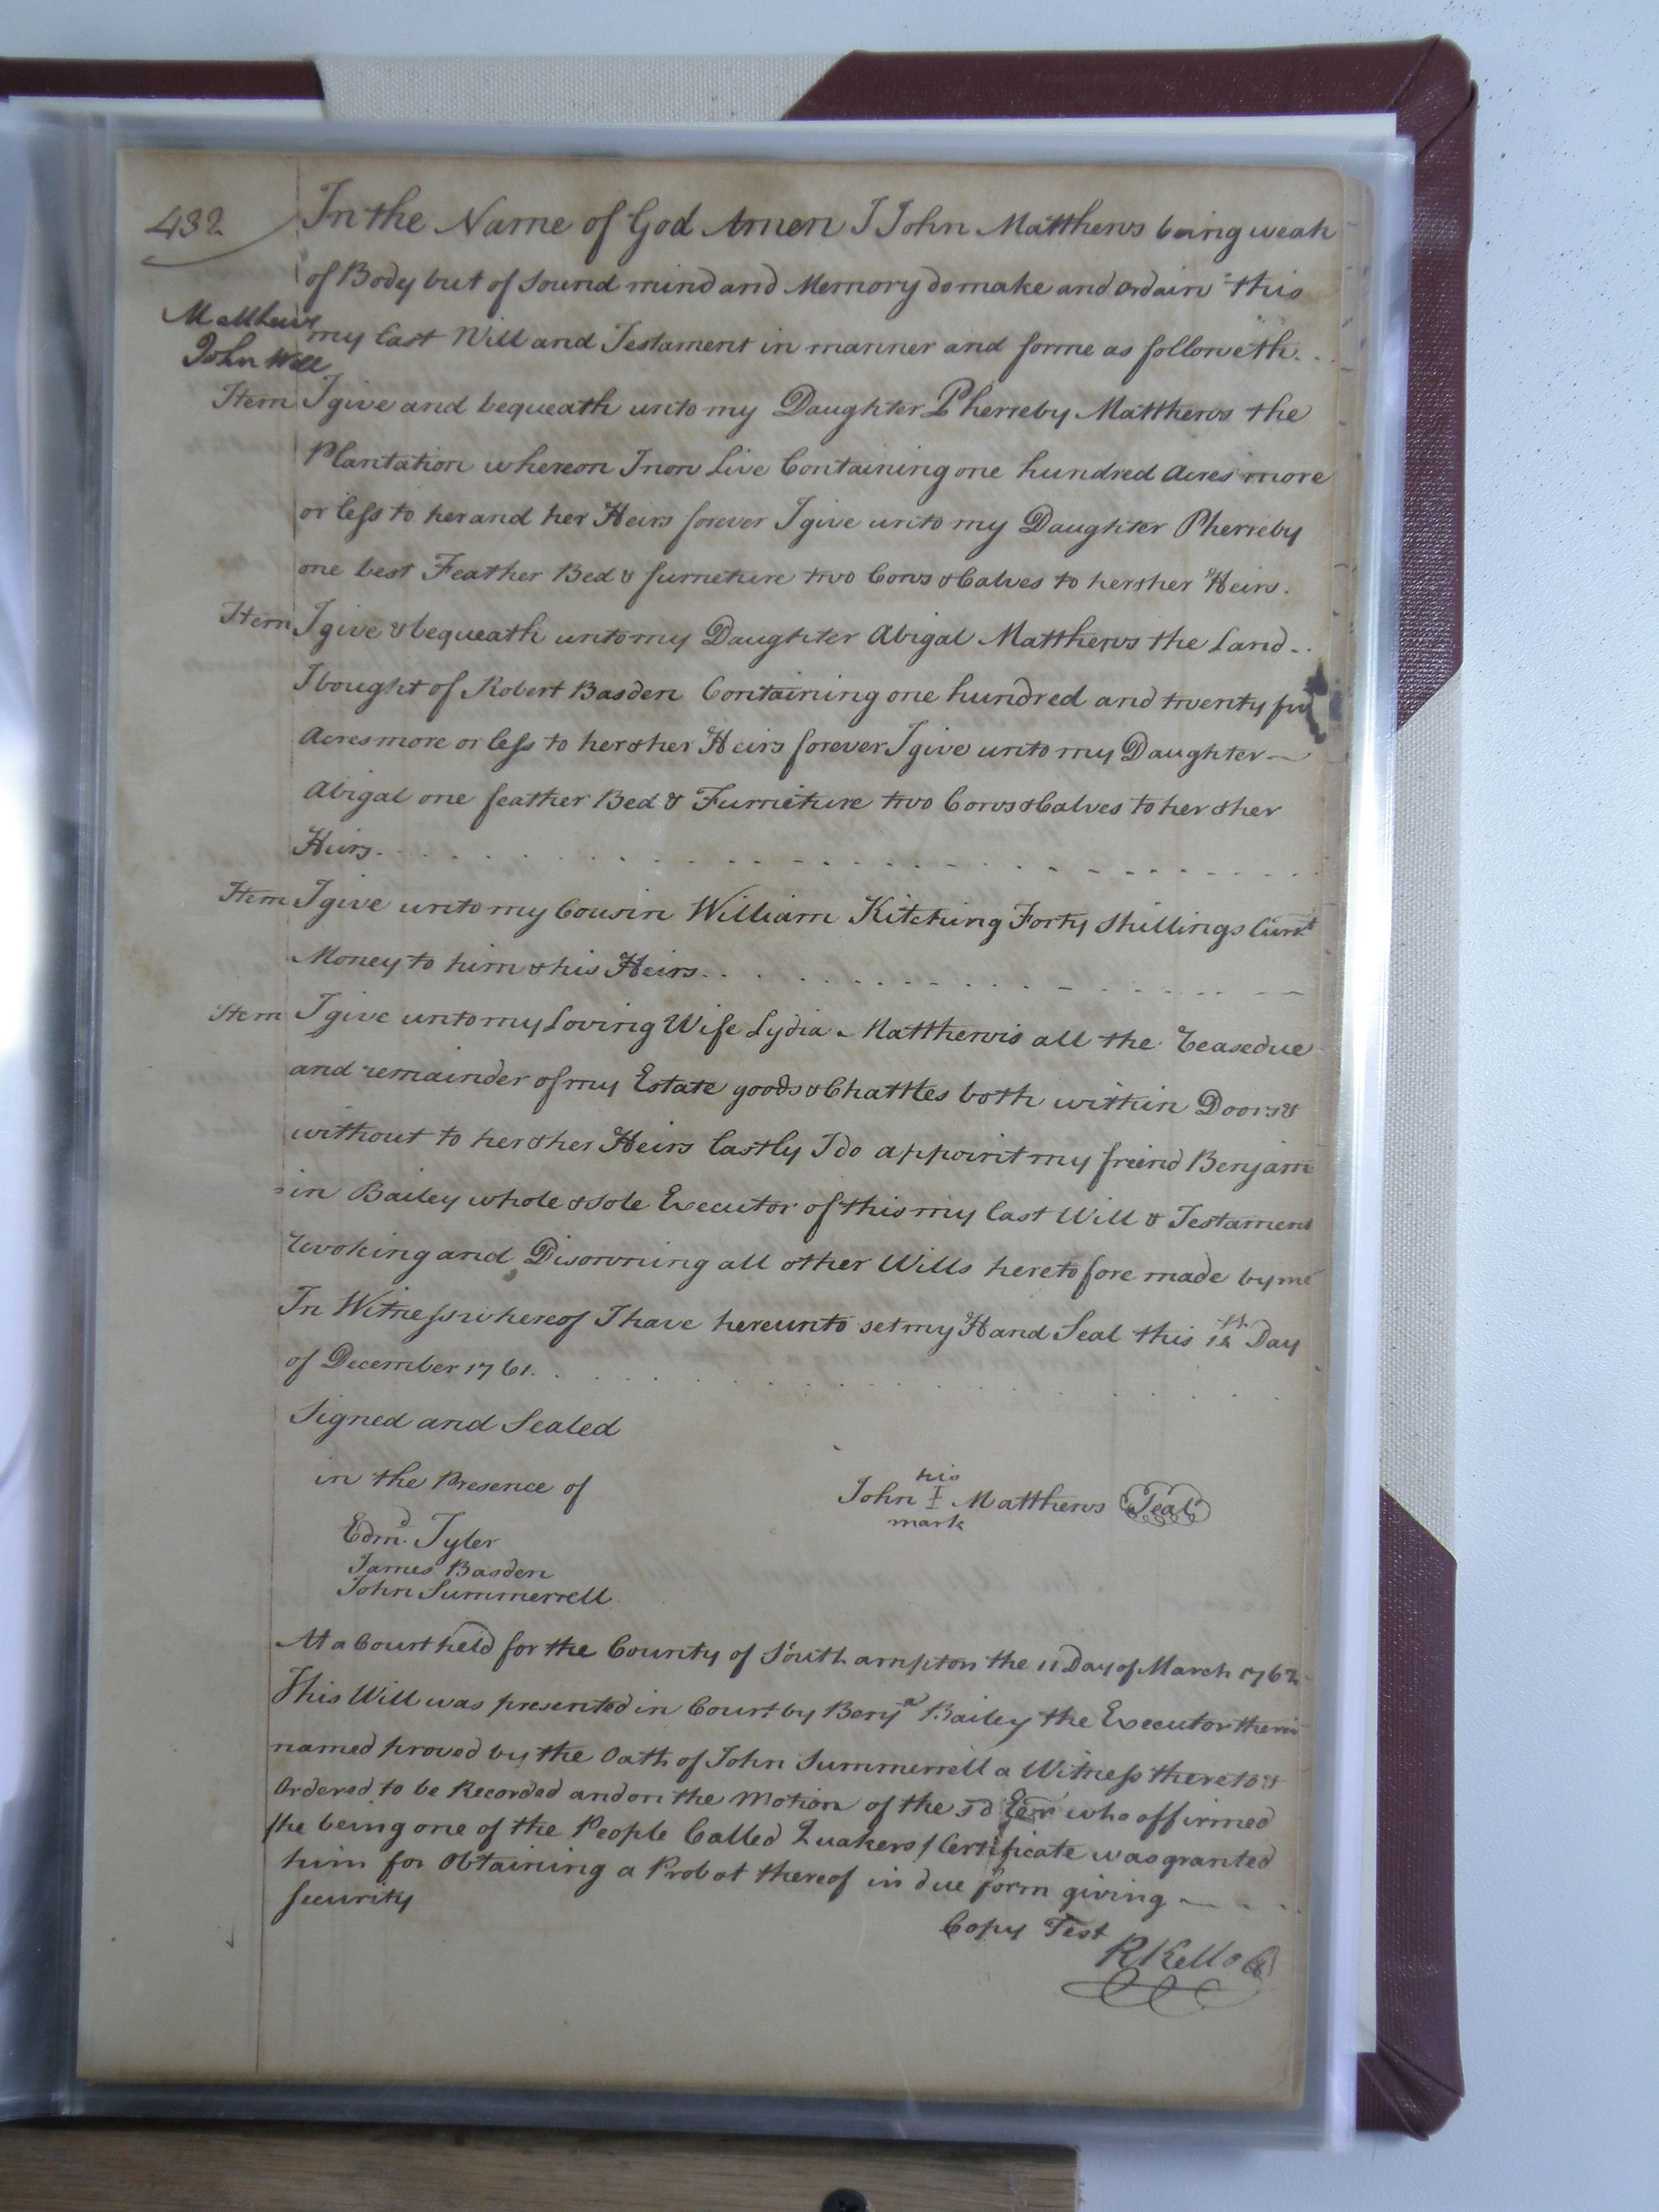 432
In the Name of God Amen I John Matthews being weak
of Body but of Sound mind and Memory do make and Ordain this
Matthews
John Will
my last Will and Testament in manner and forme as followeth. . .
Item I give and bequeath unto my Daughter Pherreby Matthews the
Plantation whereon I now Live Containing one hundred Acres more
or less to her and her Heirs forever I give unto my Daughter Pherreby
one best Feather Bed & furneture two Cows & Calves to her & her Heirs.
Item I give & bequeath unto my Daughter Abigal Matthews the Land . .
I bought of Robert Basden Containing one hundred and twenty
Acres more or less to her & her Heirs forever I give unto my Daughter —
Abigal one feather Bed & Furneture two Cows & Calves to her & her
Heirs.
Item I give unto my Cousin William Kitching Forty Shillings Curr.t
Money to him & his Heirs. . .
Item I give unto my Loving Wife Lydia Matthews all the reasedue
and remainder of my Estate goods & Chattles both within Doors &
without to her & her Heirs lastly I do appoint my friend Benjam
=in Bailey whole & Sole Executor of this my last Will & Testament
revoking and Disowning all other Wills heretofore made by me
In Witness whereof I have hereunto set my Hand Seal this 12th Day
of December 1761.
Signed and Sealed
in the Presence of
his
John I Matthews Seal
mark
Edmd. Tyler
James Basden
John Summerrell
At a Court held for the County of Southampton the 11 Day of March 1762
This Will was presented in Court by Benja Bailey the Executor therein
named proved by the Oath of John Summerrell a Witness thereto &
Ordered to be Recorded and on the Motion of the sd Exr who affirmed
/he being one of the People Called Quakers/ Certificate was granted
him for Obtaining a Probat thereof in due form giving —
Security
Copy Test
R Kello